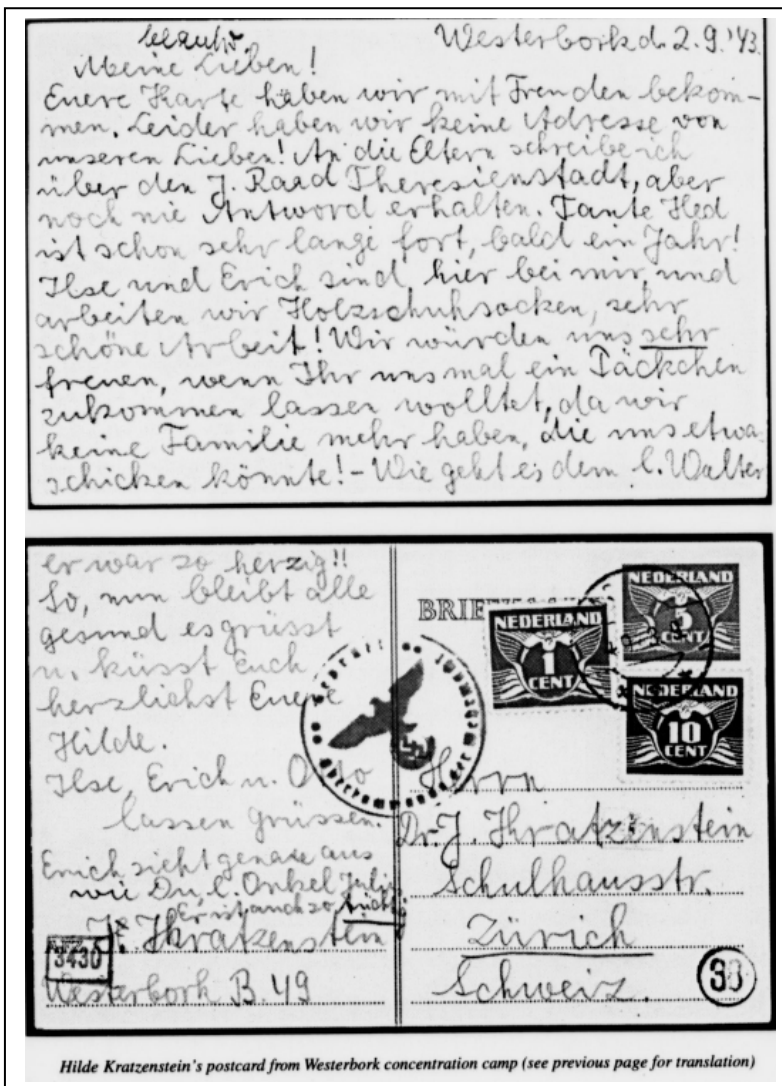 beantw.
Westerbork d. 2.9.'43.
Meine Lieben!
Euere Karte haben wir mit Freuden bekom-
men. Leider haben wir keine Adresse von
unseren Lieben! An die Eltern schreibe ich
über den J. Raad Theresienstadt, aber
noch nie Antword erhalten. Tante Hed
ist schon sehr lange fort, bald ein Jahr!
Ilse und Erich sind hier bei mir und
arbeiten wir Holzschuhsocken, sehr
schöne Arbeit! Wir würden uns sehr
freuen, wenn Ihr uns mal ein Päckchen
zukommen lassen wolltet, da wir
keine Familie mehr haben, die uns etwa
schicken könnte! - Wie geht es dem l. Walter
er war so herzig!!
So, nun bleibt alle
gesund es grüsst
u. küsst Euch
herzlichst Euere
Hilde.
Ilse, Erich u. Otto
lassen grüssen.
Erich sieht genau aus
wie Du l. Onkel Julius
Er ist auch so
Kratzenstein
3430
Westerbork B. 49
NEDERLAND
1
CENT
NEDERLAND
5
CENT
NEDERLAND
10
CENT
Herrn
Dr. J. Kratzenstein
Schulhausstr.
Zürich
Schweiz.
38
Hilde Kratzenstein's postcard from Westerbork concentration camp (see previous page for translation)